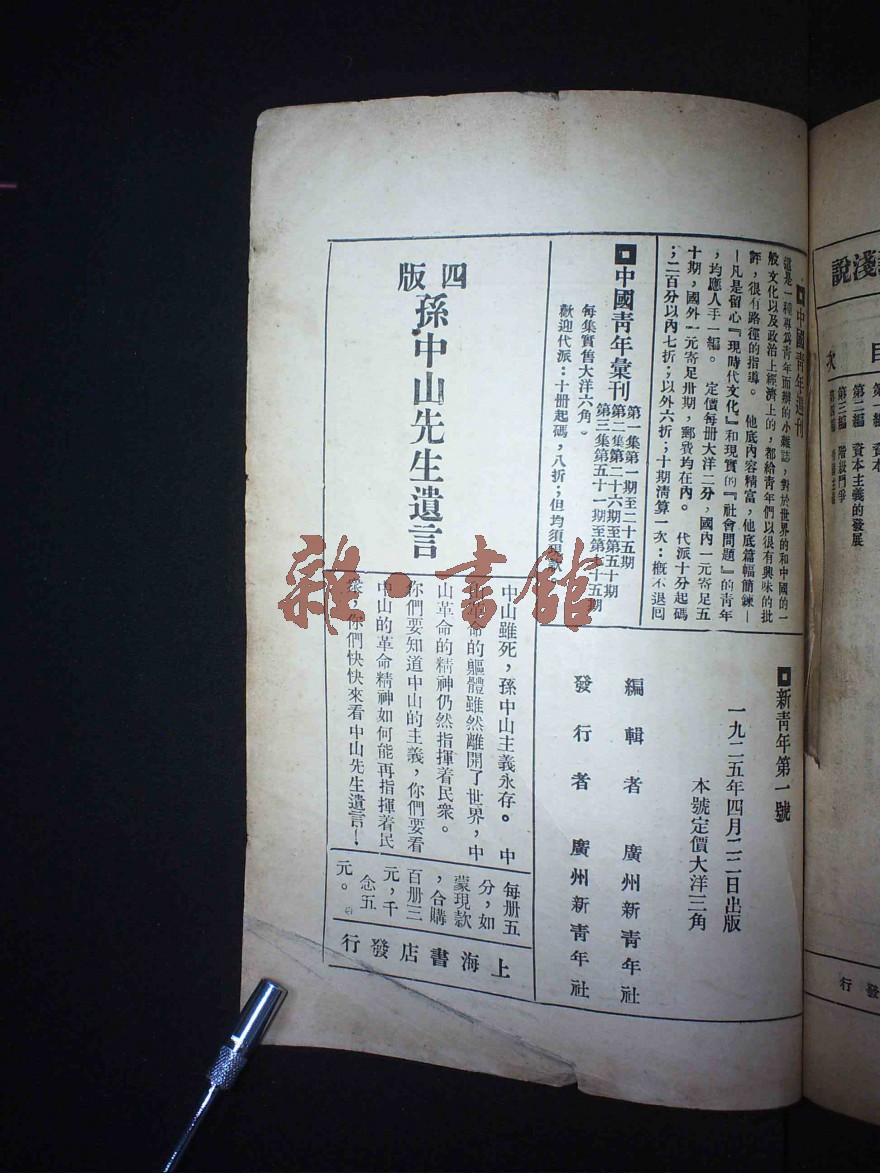 中國青年週刊
這是一種專爲青年而辦的小雜誌，對於世界的和中國的一
般文化以及政治上經濟上的，都給青年們以很有興味的批
評，很有路徑的指導。他底內容精富，他底篇幅簡鍊—
—凡是留心『現時代文化』和現實的『社會問題』的青年
，均應人手一編。定價每册大洋二分，國內一元寄足五
十期，國外一元寄足卅期，郵費均在內。代派十分起碼
；二百分以內七折；以外六折；十期淸算一次：概不退囘
中國青年彙刊
第一集第一期至二十五期
第二集第二十六期至第五十期
第三集第五十一期至第七十五期
每集實售大洋六角。
歡迎代派：十册起碼，八折；但均須現款
新青年第一號
一九二五年四月二二日出版
本號定價大洋三角
編輯者 廣州新青年社
發行者 廣州新青年社
四版
孫中山先生遺言
中山雖死，孫中山主義永存。中
山革命的軀體雖然離開了世界，中
山革命的精神仍然指揮着民衆。
你們要知道中山的主義，你們要看
中山的革命精神如何能再指揮着民
衆，你們快快來看中山先生遺言！
每册五
分，如
蒙現款
，合購
百册三
元，千
念五
元。
上海書店發行
淺說
目次
第二編 資本主義的發展
第三編 階級鬥爭
發行
雜·書館